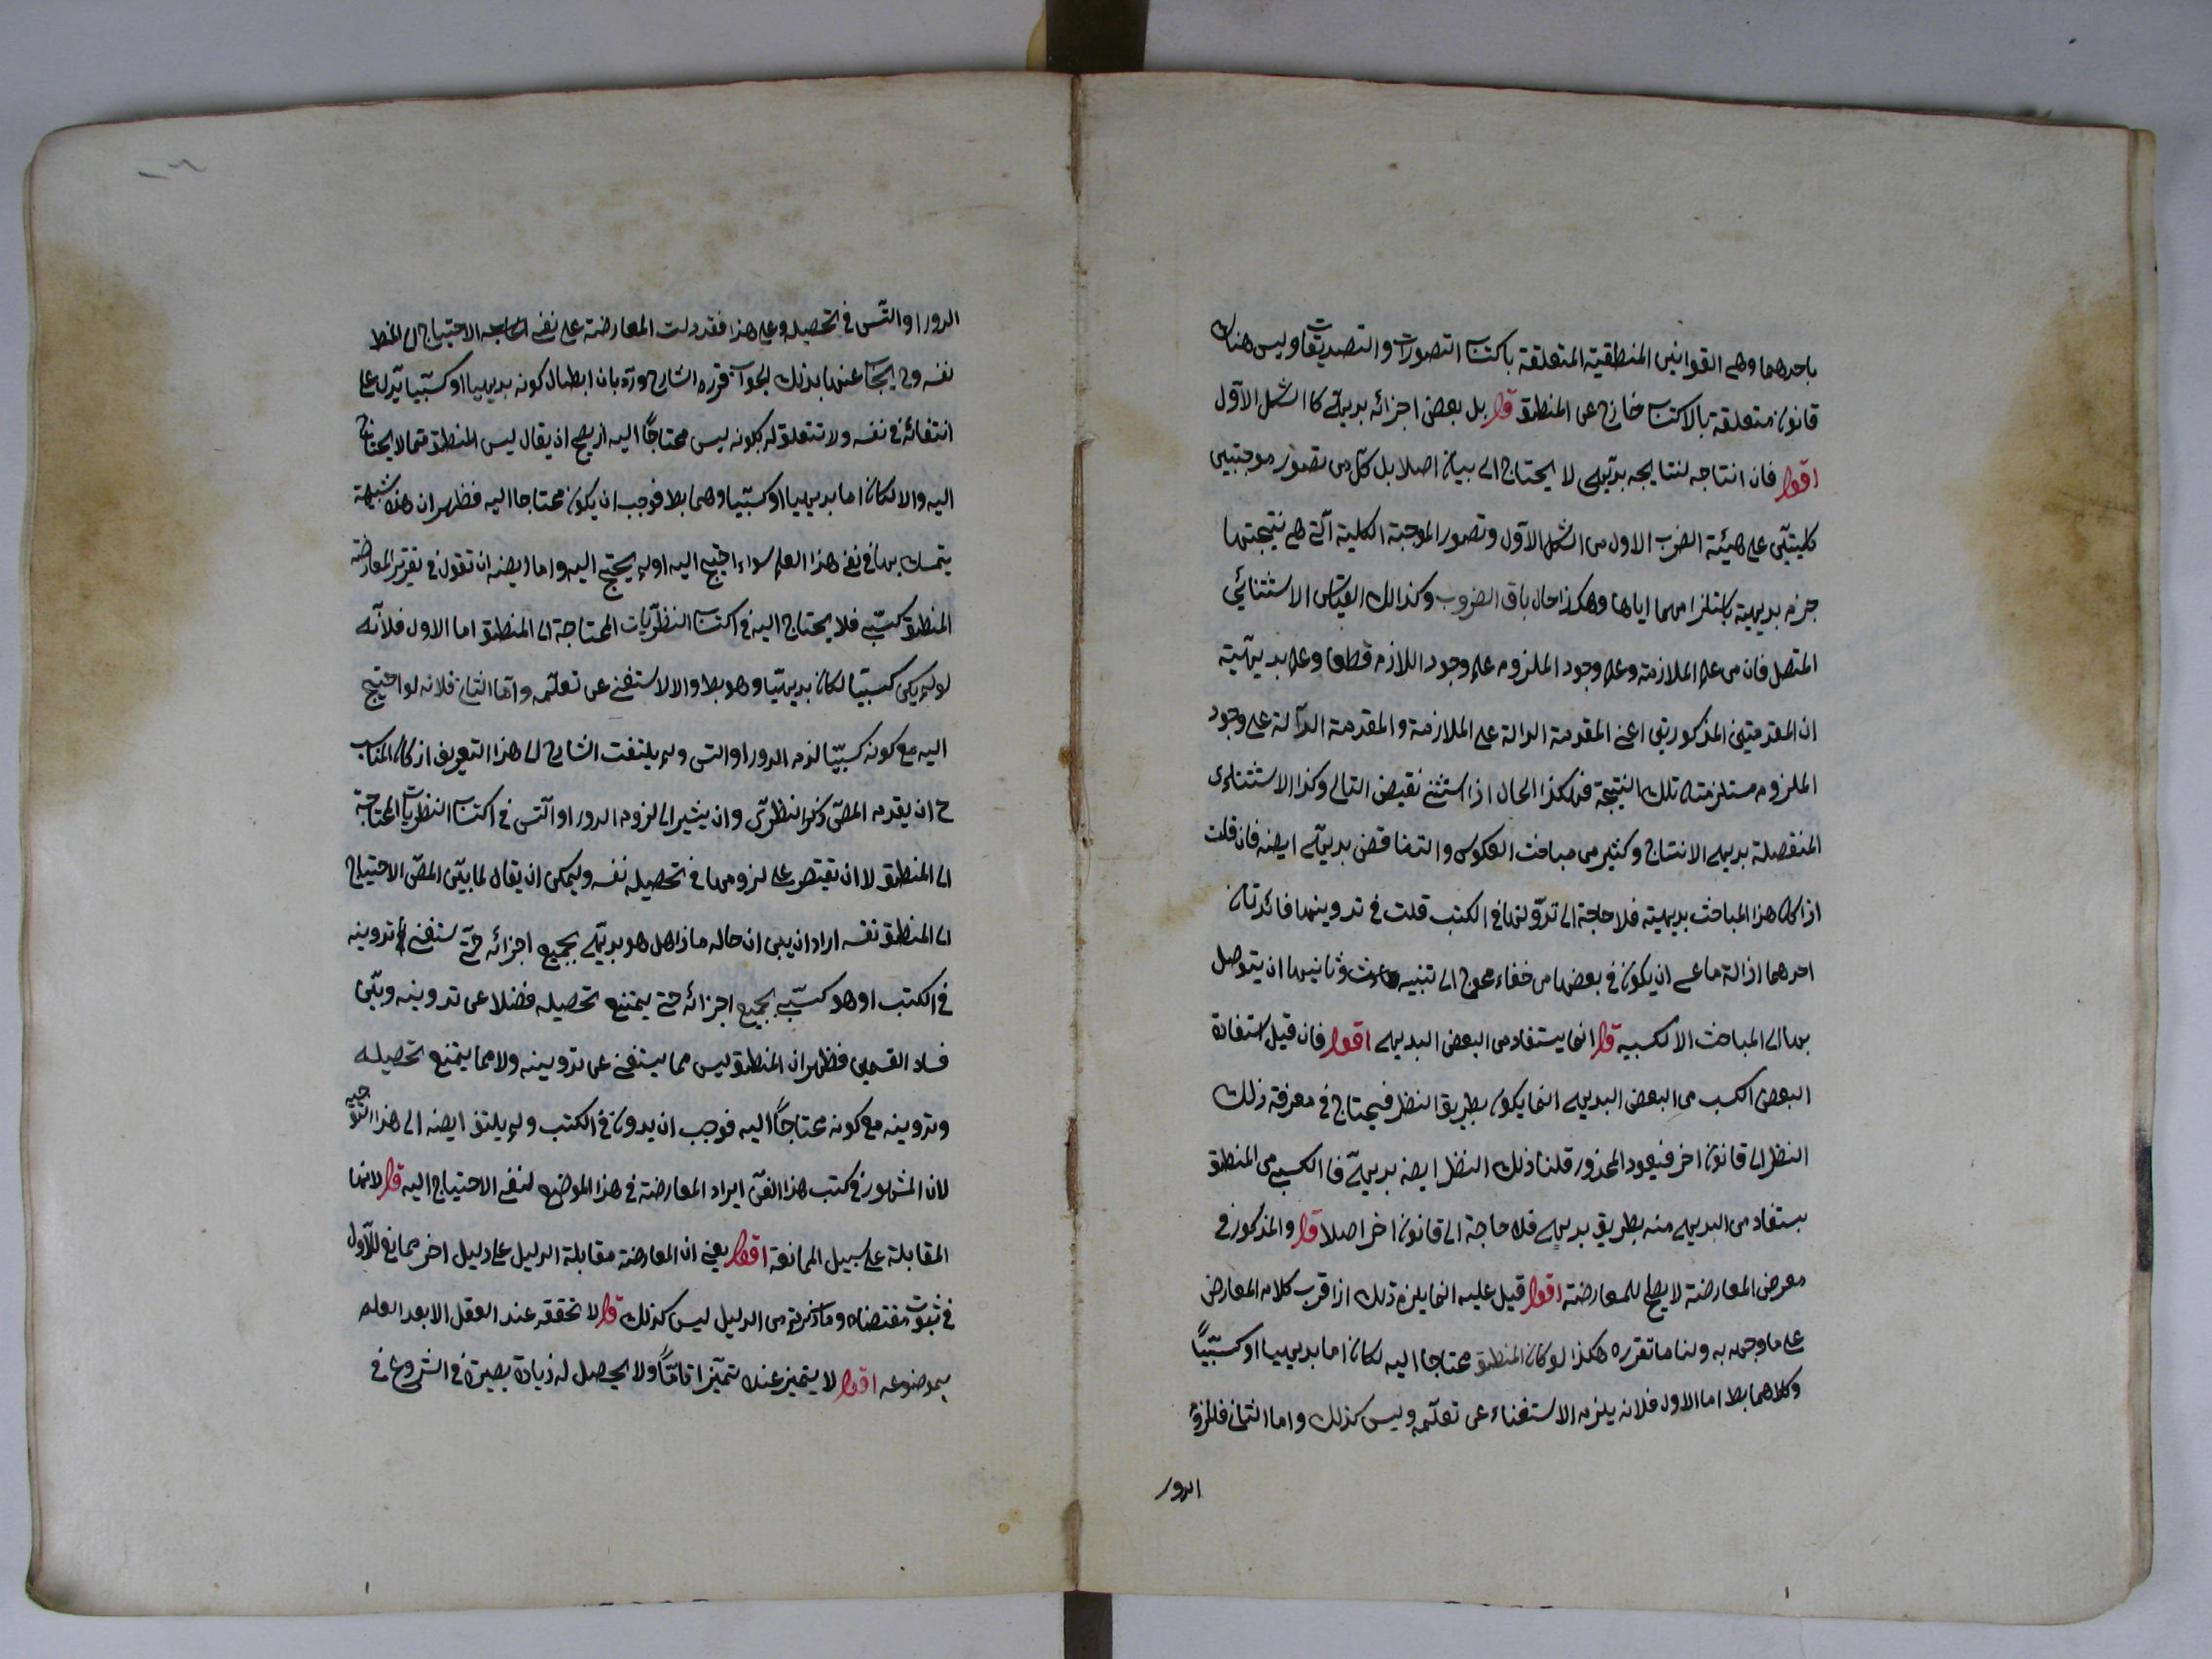 باحدهما وهى القوانين المنطقية المتعلقة باكتساب التصورات والتصديقات وليس هناك
قانون متعلقة بالاكتساب خارج عن المنطق قوله بل بعض اجزائه بديهى كالشكل الاول
اقول فان انتاجه لنتايجه بديهى لا يحتاج الى بيان اصلا بل كل من تصور موجبتين
كليتين على هيئة الضرب الاول من الشكل الاول وتصور الموجبة الكلية التى هى نتيجتهما
جزم بديهية باستلزامهما اياها وهكذا حال باقى الضروب وكذالك القياس الاستثنائى
المتصل فان من علم الملازمة وعلم وجود الملزوم علم وجود اللازم قطعا وعلم بديهية
ان المقدمتين المذكورتين اعنى المقدمة الدالة على الملازمة والمقدمة الدالة على وجود
الملزوم مستلزمتان تلك النتيجة فهكذا الحال اذا استثنى نقيض التالى وكذا الاستثناءى
المنفصلة بديهى الانتاج وكثير من مباحث العكوس والتناقض بديهى ايضه فان قلت
اذا كان هذا المباحث بديهية فلا حاجة الى تدوينها فى الكتب قلت فى تدوينها فائدتان
احدهما ازالة ما عسى ان يكون فى بعضها من خفاء محوج الى تنبيه وثانيهما ان يتوصل
بها الى المباحث الاكسبيه قوله انما يستفاد من البعض البديهى اقول فان قيل استفادة
البعض الكسبى من البعض البديهى انما يكون بطريق النظر فيحتاج فى معرفة ذلك
النظر الى قانون اخر فيعود المحذور قلنا ذلك النظر ايضه بديهى فالكسبى من المنطق
يستفاد من البديهى منه بطريق بديهى فلا حاجة الى قانون اخر اصلا قوله والمذكور فى
معرض المعارضة لا يصلح للمعارضة اقول قيل عليه انما يلزم ذلك اذا قرب كلام المعارض
على ما وجهه به ولنا ما تقرره هكذا لو كان المنطق محتاجا اليه لكان اما بديهيا او كسبيًا
وكلاهما بط اما الاول فلانه يلزم الاستغناء عن تعلمه وليس كذلك واما الثانى فللزوم
الدور
الدور او التس فى تحصيله وعلى هذا فقد دلت المعارضة على نفى الاحتياج الى المنطق
نفسه وح يجاب عنها بذلك الجواب قرره الشارح ورد بان ابطال كونه بديهيا او كسبيا يدل على
انتفائه فى نفسه ولا تتعلق له بكونه ليس محتاجًا اليه اذ يصح ان يقال ليس المنطق مما لا يحتاج
اليه والا لكان اما بديهيا او كسبيا وهما بط فوجب ان يكون محتاجا اليه فظهر ان هذه شبهة
يتمسك بها فى نفى هذا العلم سواء احتيج اليه او لم يحتج اليه واما ايضه ان تقول فى تقرير المعارضة
المنطق كسبى فلا يحتاج اليه فى اكتساب النظريات المحتاجة الى المنطق اما الاول فلانه
لو لم يكن كسبيا لكان بديهيا وهو بط والا لاستغنى عن تعلمه واما الثانى فلانه لو احتيج
اليه مع كونه كسبيا لزم الدور او التس ولم يلتفت الشارح الى هذا التعريف اذ كان المناسب
ح ان يقدم المص ذكر النظرى وان يشير الى لزوم الدور او التس فى اكتساب النظريات المحتاجة
الى المنطق لا ان يقتصر على لزومها فى تحصيله نفسه ويمكن ان يقال لما بين المص الاحتياج
الى المنطق نفسه اراد ان يبين ان حاله ماذا هل هو بديهى بجميع اجزائه حتى يستغنى تدوينه
فى الكتب او هو كسبى بجميع اجزائه حتى يمتنع تحصيله فضلا عن تدوينه وبين
فساد القسمين فظهر ان المنطق ليس مما يستغنى عن تدوينه ولا مما يمتنع تحصيله
وتدوينه مع كونه محتاجًا اليه فوجب ان يدون فى الكتب ولم يلتفت ايضه الى هذا التوجيه
لان المشهور فى كتب هذا الفن ايراد المعارضة فى هذا الموضع لنفى الاحتياج اليه قوله لانها
المقابلة على سبيل الممانعة اقول يعنى ان المعارضة مقابلة الدليل على دليل اخر ممانع للاول
فى ثبوت مقتضاه وما ذكرتم من الدليل ليس كذلك قوله لا تحققه عند العقل الا بعد العلم
بموضوعه اقول لا يتميز عنده تميزا تامًا ولا يحصل له زيادة بصيرة فى الشروع فى